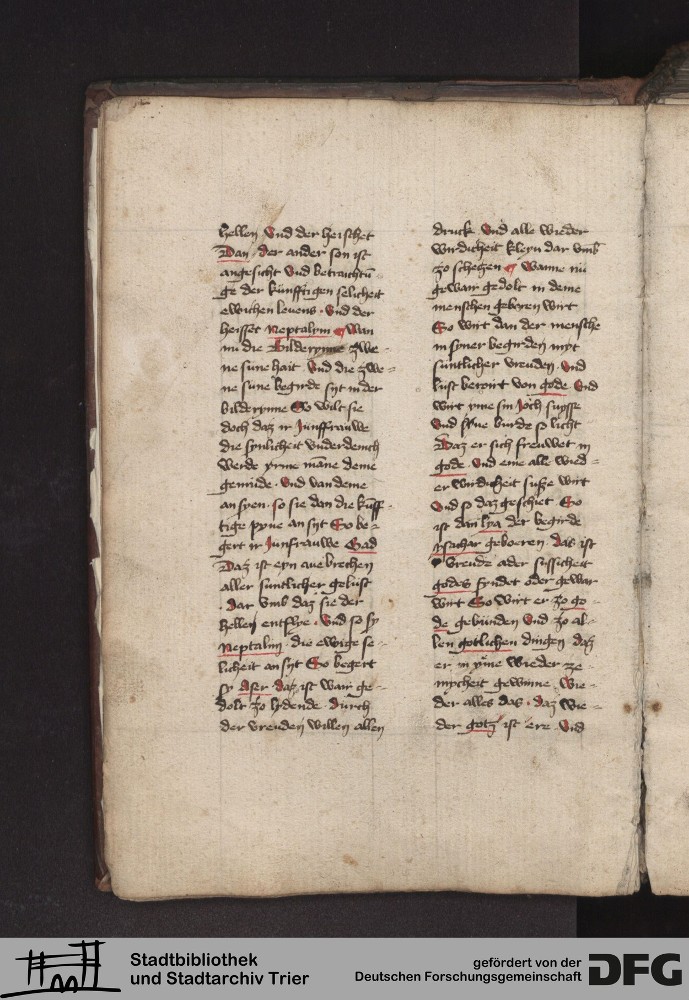 hellen Vnd der heischet
Dan der ander son ist
angesicht Vnd betraichtū
ge der künfftigen selicheit
ewichen leuens. Vnd der
heisset Neptalym Wan
nu die Bilderynne zwe-
ne sune hait Vnd die zwe-
ne sune begirde syt in der
bilderynne So wilt sie
doch daz ir Junffrauwe
die synlicheit vnderdenich
werde yrme māne deme
gemude. Vnd van deme
an syen. so sie dan die kūff-
tige pyne an syt So be-
gert ir Junfrauwe Gad
Daz ist eyn aue brechen
aller suntlicher gelust
. dar vmb daz sie der
hellen entflye. Vnd so sy
Neptalim. die ewige se-
licheit an syt So begert
sy Aser. daz ist wair ge-
dolt zo lydende. durch
der vreuden willen allen
druck Vnd alle wieder
wirdicheit kleyn dar vmb
zo schetzen Wanne nu
gewair gedolt in deme
menschen geboren wirt
So wirt dan der mensche
in syner begirden myt
suntlicher vreuden. Vnd
lust beroirt von gode Vnd
wirt yme sin Joch suysse
Vnd syne burde so licht
Daz er sich freuwet in
gode. Vnd eme alle wied-
er wirdicheit suße wirt
Vnd so daz geschiet. So
ist dan lya der begirde
ysachar geboeren. das ist
vreude ader sussicheit
godes fyndet oder gewar
wirt So wirt er zo go-
de gebunden Vnd zo al-
len gotlichen dingen daz
er in yme wieder ze-
mycheit gewinne. Wie-
der alles das. daz wie-
der gotz ist ere Vnd
Stadtbibliothek
und Stadtarchiv Trier
gefördert von der
Deutschen Forschungsgemeinschaft
DFG